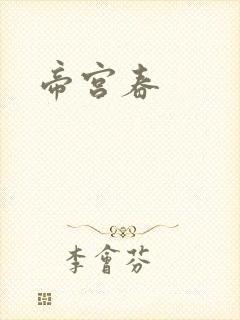 帝宫春
李會芬